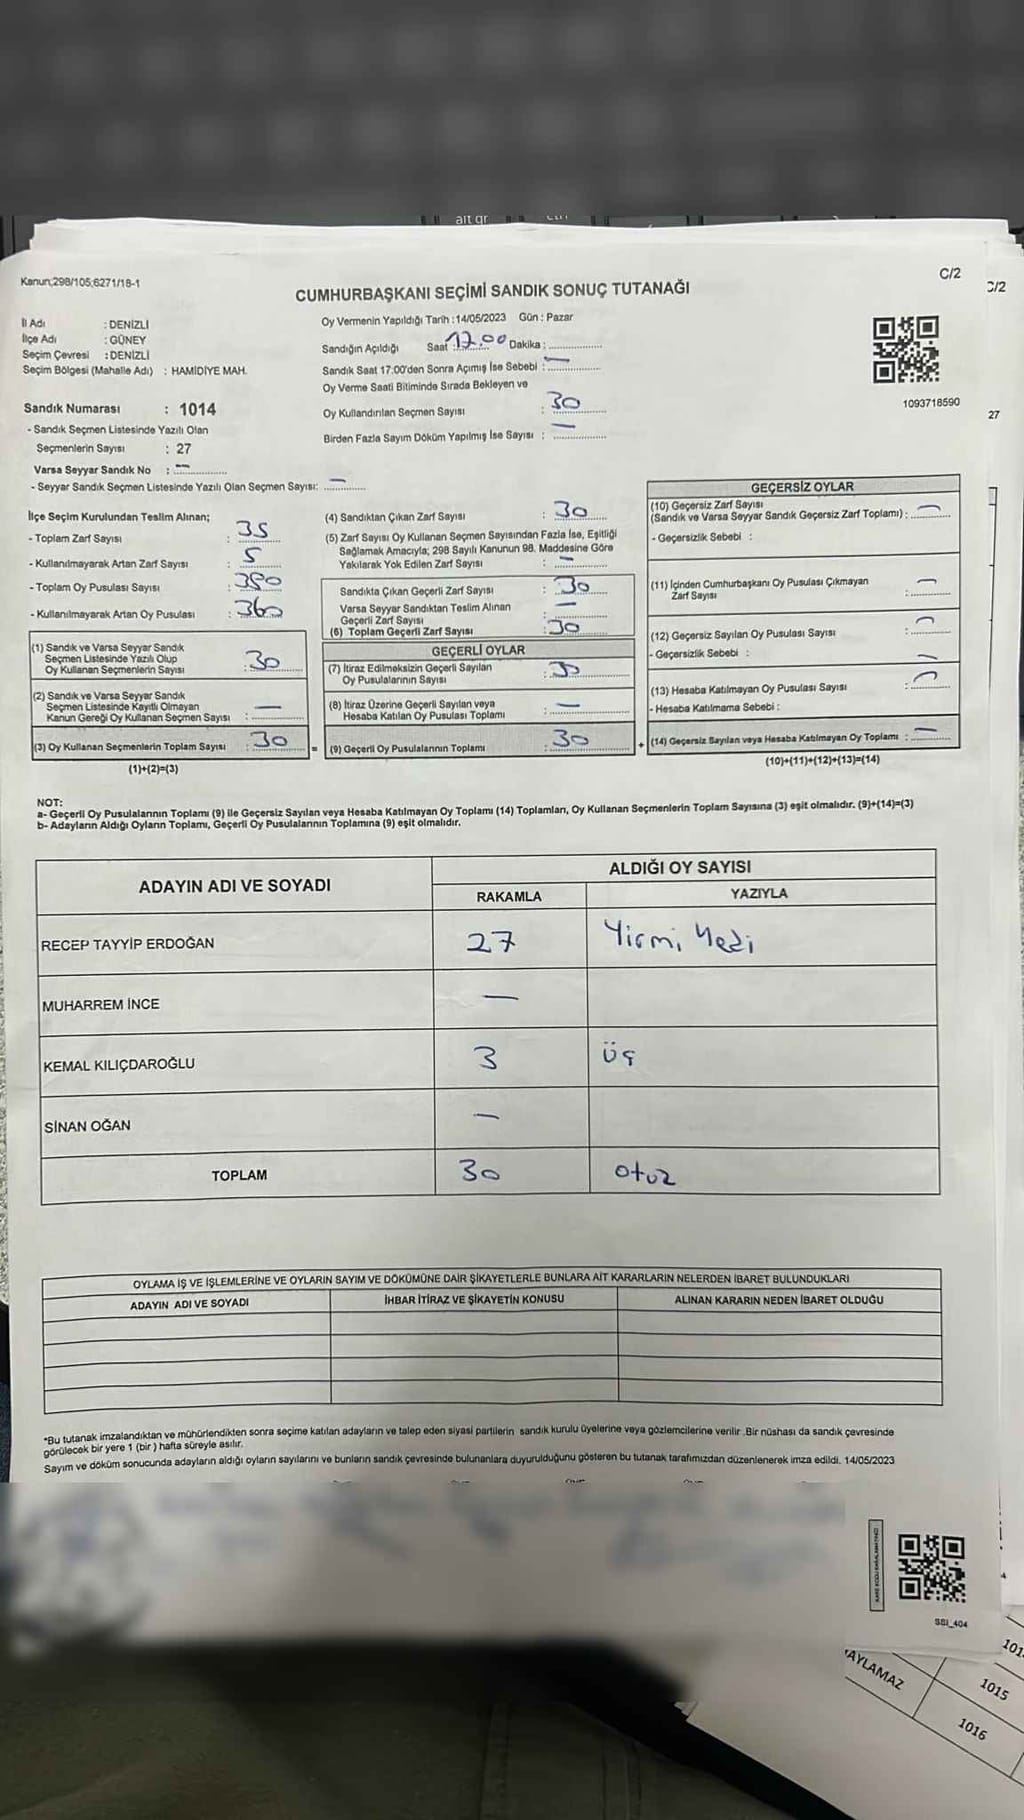 alt gr
Kanun;298/105;6271/18-1
C/2
C/2
CUMHURBAŞKANI SEÇİMİ SANDIK SONUÇ TUTANAĞI
İl Adı : DENİZLİ
İlçe Adı : GÜNEY
Seçim Çevresi : DENİZLİ
Seçim Bölgesi (Mahalle Adı) : HAMİDİYE MAH.
Oy Vermenin Yapıldığı Tarih :14/05/2023 Gün : Pazar
Sandığın Açıldığı Saat : 17.00 Dakika :
Sandık Saat 17:00'den Sonra Açımış İse Sebebi : —
Oy Verme Saati Bitiminde Sırada Bekleyen ve
Oy Kullandırılan Seçmen Sayısı : 30
Birden Fazla Sayım Döküm Yapılmış İse Sayısı : —
1093718590
27
Sandık Numarası : 1014
- Sandık Seçmen Listesinde Yazılı Olan
Seçmenlerin Sayısı : 27
Varsa Seyyar Sandık No : —
- Seyyar Sandık Seçmen Listesinde Yazılı Olan Seçmen Sayısı: —
İlçe Seçim Kurulundan Teslim Alınan;
- Toplam Zarf Sayısı : 35
- Kullanılmayarak Artan Zarf Sayısı : 5
- Toplam Oy Pusulası Sayısı : 390
- Kullanılmayarak Artan Oy Pusulası : 360
(1) Sandık ve Varsa Seyyar Sandık
Seçmen Listesinde Yazılı Olup
Oy Kullanan Seçmenlerin Sayısı : 30
(2) Sandık ve Varsa Seyyar Sandık
Seçmen Listesinde Kayıtlı Olmayan
Kanun Gereği Oy Kullanan Seçmen Sayısı : —
(3) Oy Kullanan Seçmenlerin Toplam Sayısı : 30
(1)+(2)=(3)
(4) Sandıktan Çıkan Zarf Sayısı : 30
(5) Zarf Sayısı Oy Kullanan Seçmen Sayısından Fazla İse, Eşitliği
Sağlamak Amacıyla; 298 Sayılı Kanunun 98. Maddesine Göre
Yakılarak Yok Edilen Zarf Sayısı : —
Sandıkta Çıkan Geçerli Zarf Sayısı : 30
Varsa Seyyar Sandıktan Teslim Alınan
Geçerli Zarf Sayısı : —
(6) Toplam Geçerli Zarf Sayısı : 30
GEÇERLİ OYLAR
(7) İtiraz Edilmeksizin Geçerli Sayılan
Oy Pusulalarının Sayısı : 30
(8) İtiraz Üzerine Geçerli Sayılan veya
Hesaba Katılan Oy Pusulası Toplamı : —
= (9) Geçerli Oy Pusulalarının Toplamı : 30
GEÇERSİZ OYLAR
(10) Geçersiz Zarf Sayısı
(Sandık ve Varsa Seyyar Sandık Geçersiz Zarf Toplamı) : —
- Geçersizlik Sebebi :
(11) İçinden Cumhurbaşkanı Oy Pusulası Çıkmayan
Zarf Sayısı : —
(12) Geçersiz Sayılan Oy Pusulası Sayısı : —
- Geçersizlik Sebebi : —
(13) Hesaba Katılmayan Oy Pusulası Sayısı : —
- Hesaba Katılmama Sebebi :
+ (14) Geçersiz Sayılan veya Hesaba Katılmayan Oy Toplamı : —
(10)+(11)+(12)+(13)=(14)
NOT:
a- Geçerli Oy Pusulalarının Toplamı (9) ile Geçersiz Sayılan veya Hesaba Katılmayan Oy Toplamı (14) Toplamları, Oy Kullanan Seçmenlerin Toplam Sayısına (3) eşit olmalıdır. (9)+(14)=(3)
b- Adayların Aldığı Oyların Toplamı, Geçerli Oy Pusulalarının Toplamına (9) eşit olmalıdır.
ADAYIN ADI VE SOYADI
ALDIĞI OY SAYISI
RAKAMLA YAZIYLA
RECEP TAYYİP ERDOĞAN 27 Yirmi Yedi
MUHARREM İNCE —
KEMAL KILIÇDAROĞLU 3 üç
SİNAN OĞAN —
TOPLAM 30 otuz
OYLAMA İŞ VE İŞLEMLERİNE VE OYLARIN SAYIM VE DÖKÜMÜNE DAİR ŞİKAYETLERLE BUNLARA AİT KARARLARIN NELERDEN İBARET BULUNDUKLARI
ADAYIN ADI VE SOYADI İHBAR İTİRAZ VE ŞİKAYETİN KONUSU ALINAN KARARIN NEDEN İBARET OLDUĞU
*Bu tutanak imzalandıktan ve mühürlendikten sonra seçime katılan adayların ve talep eden siyasi partilerin sandık kurulu üyelerine veya gözlemcilerine verilir .Bir nüshası da sandık çevresinde
görülecek bir yere 1 (bir ) hafta süreyle asılır.
Sayım ve döküm sonucunda adayların aldığı oyların sayılarını ve bunların sandık çevresinde bulunanlara duyurulduğunu gösteren bu tutanak tarafımızdan düzenlenerek imza edildi. 14/05/2023
SSI_404
AYLAMAZ
1015
1016